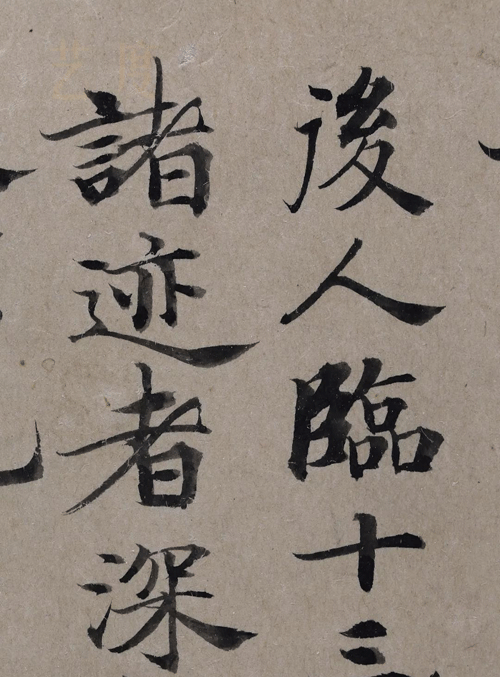 後人臨十二
諸迹者深